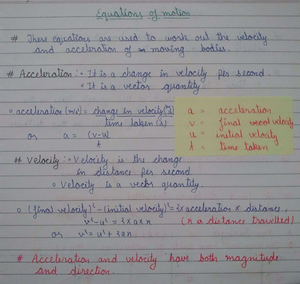 Equations of motion
# These equations are used to work out the velocity
and acceleration of moving bodies.
# Acceleration :◦ It is a change in velocity per second.
◦ It is a vector quantity.
◦ acceleration (m/s²) = change in velocity (m/s)
time taken (s)
or a = (v-u)
t
a = acceleration
v = final velocity
u = initial velocity
t = time taken
# Velocity :◦ Velocity is the change
in distance per second.
◦ Velocity is a vector quantity.
◦ (final velocity)² - (initial velocity)² = 2 x acceleration x distance.
v² - u² = 2 x a x x (x = distance travelled)
or v² = u² + 2ax.
# Acceleration and velocity have both magnitude
and direction.